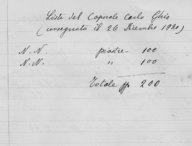 Lista del Caporale Carlo Ghio
(consegnata il 26 Dicembre 1820)
N. N. piastre 100
N. N. " 100
Totale pp 200